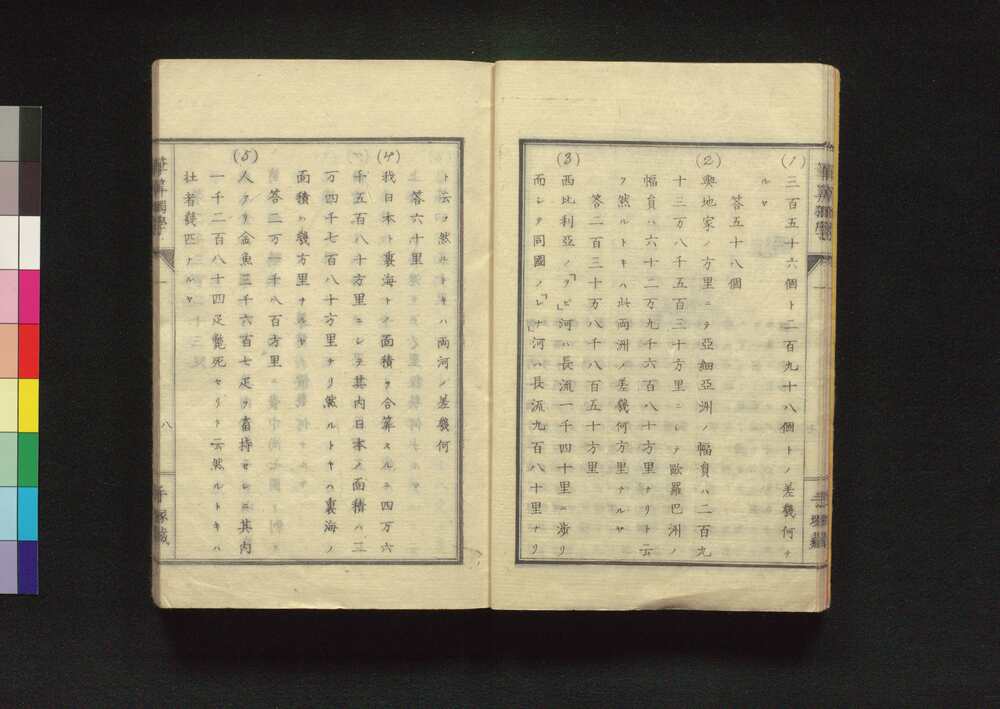 (1) 三百五十六個ト二百九十八個トノ差幾何ナ
ルヤ
答五十八個
(2) 輿地家ノ方里ニテ亞細亞洲ノ幅員ハ二百九
十三万八千五百三十方里ニシテ歐羅巴洲ノ
幅員ハ六十二万九千六百八十方里ナリト云
フ然ルトキハ此両洲ノ差幾何方里ナルヤ
答二百三十万八千八百五十方里
(3) 西比利亞ノ「ヲビ」河ハ長流一千四十里ニ渉リ
而シテ同國ノ「レナ」河ハ長流九百八十里ナリ
ト云フ然ルトキハ両河ノ差幾何
答六十里
(4) 我日本ト裏海トノ面積ヲ合算スルニ四万六
千五百八十方里ニシテ其内日本ノ面積ハ二
万四千七百八十方里ナリ然ルトキハ裏海ノ
面積ハ幾方里ナルヤ
答二万一千八百方里
(5) 人アリ金魚三千六百七疋ヲ畜持セシニ其内
一千二百八十四疋斃死セリト云然ルトキハ
壮者幾匹ナルヤ
一
八